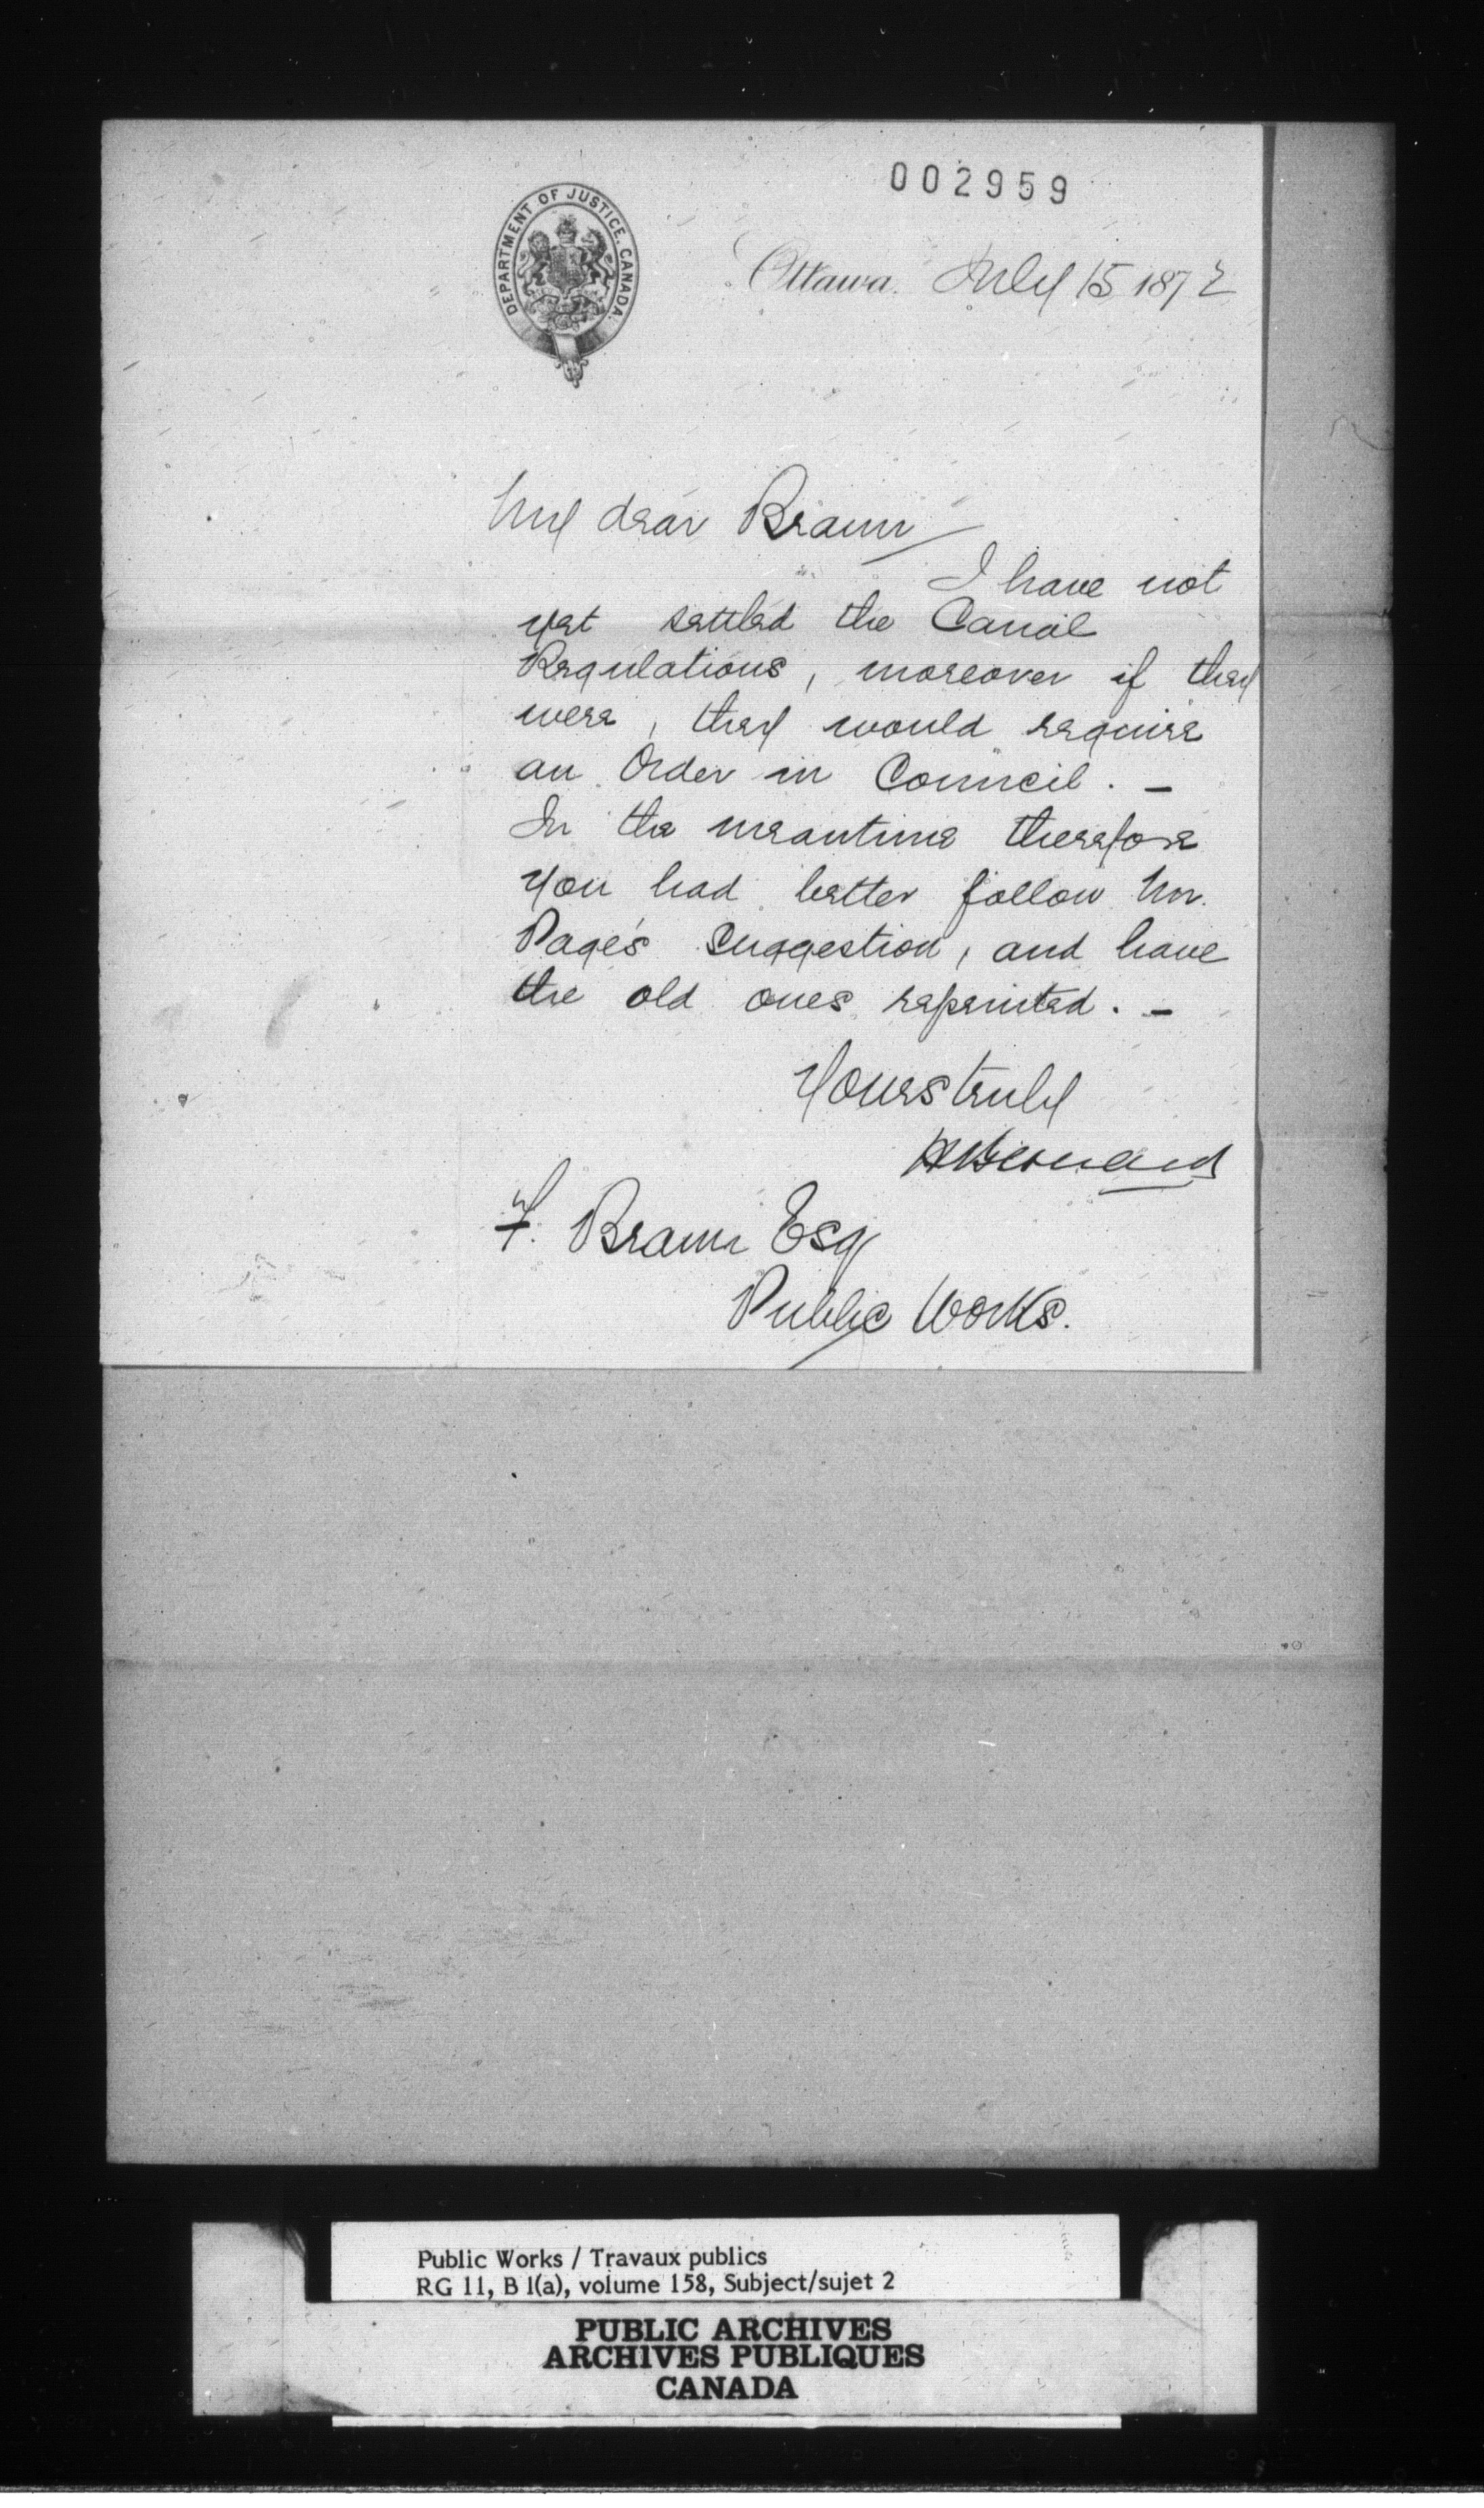 002959
DEPARTMENT OF JUSTICE. CANADA.
Ottawa. July 15 1872
My dear Braun
I have not
yet settled the Canal
Regulations, moreover if they
were, they would require
an Order in Council. -
In the meantime therefore
you had better follow Mr.
Page's suggestion, and have
the old ones reprinted. -
Yours truly
H Bernard
F. Braun Esq
Public Works.
Public Works / Travaux publics
RG 11, B 1(a), volume 158, Subject/sujet 2
PUBLIC ARCHIVES
ARCHIVES PUBLIQUES
CANADA